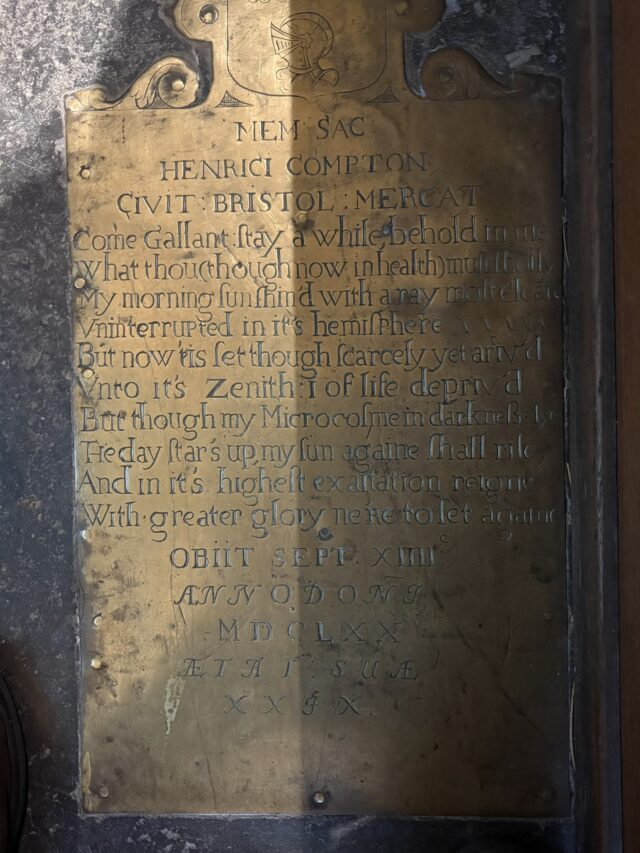 MEM SAC
HENRICI COMPTON
CIVIT : BRISTOL : MERCAT
Come Gallant ſtay a while, behold in me
What thou (though now in health) muſt ſhortly
My morning ſun ſhin'd with a ray moſt cleare
Vninterrupted in it's hemiſphere
But now 'tis ſet though ſcarcely yet ariv'd
Vnto it's Zenith : I of life depriv'd
But though my Microcoſme in darkneſse lye
The day ſtar's up, my ſun againe ſhall riſe,
And in it's higheſt exaltation reigne
With greater glory ne're to ſet againe
OBIIT SEPT. XIIII°
ANNO DONI
MDCLXX
ÆTAT : SUÆ
XXIX